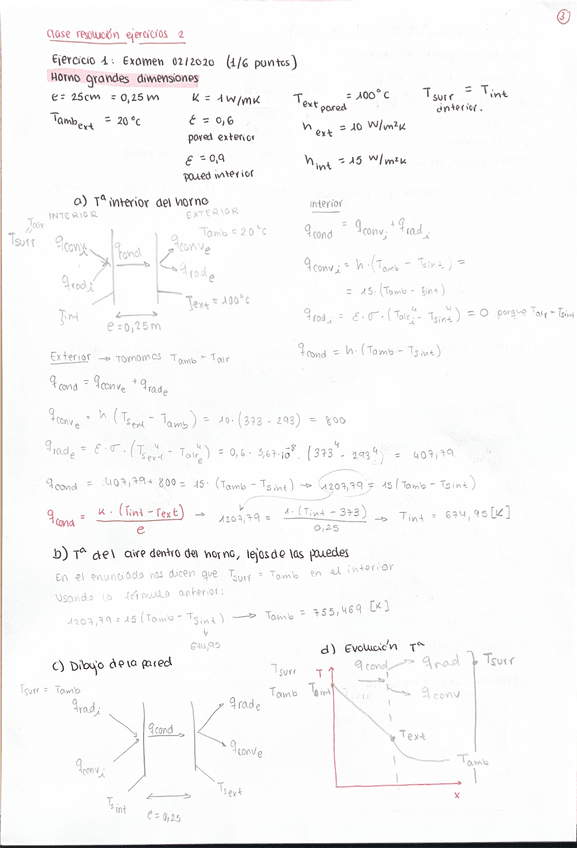 3
Clase resolución ejercicios 2
Ejercicio 1: Examen 02/2020 (1/6 puntos)
Horno grandes dimensiones
e = 25cm = 0,25 m K = 1 W/mK T ext pared = 100°C Tsurr interior. = Tint
Tamb ext = 20°C ε = 0,6 pared exterior h ext = 10 W/m²K
ε = 0,9 pared interior h int = 15 W/m²K
a) Tª interior del horno
INTERIOR EXTERIOR
Tair
Tsurr
Tamb = 20°C
qconvi qcond qconve
qradi qrade
Tint Text = 100°C
e = 0,25m
interior
qcond = qconvi + qradi
qconvi = h · (Tamb - Tsint) =
= 15 · (Tamb - Sint)
qradi = ε · σ · (Tairi⁴ - Tsint⁴) = 0 porque Tair = Tsint
qcond = h · (Tamb - Tsint)
Exterior → Tomamos Tamb = Tair
qcond = qconve + qrade
qconve = h (Tsext - Tamb) = 10 · (373 - 293) = 800
qrade = ε · σ · (Tsext⁴ - Taire⁴) = 0,6 · 5,67·10⁻⁸ · (373⁴ - 293⁴) = 407,79
qcond = 407,79 + 800 = 15 · (Tamb - Tsint) → 1207,79 = 15 (Tamb - Tsint)
qcond = K · (Tint - Text) / e → 1207,79 = 1 · (Tint - 373) / 0,25 → Tint = 674,95 [K]
b) Tª del aire dentro del horno, lejos de las paredes
En el enunciado nos dicen que Tsurr = Tamb en el interior
Usando la fórmula anterior:
1207,79 = 15 (Tamb - Tsint) → Tamb = 755,469 [K]
674,95
c) Dibujo de la pared
Tsurr = Tamb
qradi qcond qrade
qconvi qconve
Tsint Tsext
e = 0,25
d) Evolución Tª
Tsurr T qcond qrad Tsurr
Tamb Tsint qconv
Text
Tamb
x